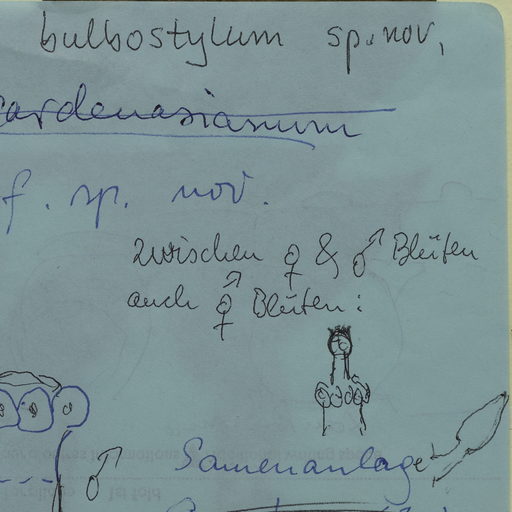 bulbostylum sp. nov,
cardenasianum
f. sp. nov.
zwischen ♀ & ♂ Blüten
auch ⚥ Blüten:
♂ Samenanlage